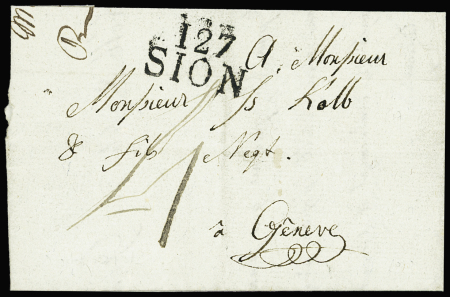 127
SION
A Monsieur
Monsieur Js Kolb
& Fils Negt.
à Genève